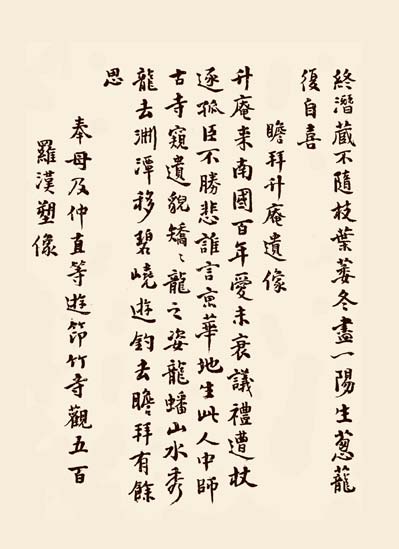 終潛藏不隨枝葉萎冬盡一陽生蔥蘢
復自喜
瞻拜升庵遺像
升庵来南國百年愛未衰議禮遭杖
逐孤臣不勝悲誰言京華地生此人中師
古寺窺遺貌矯〻龍之姿龍蟠山水秀
龍去淵潭移碧嶢遊釣去瞻拜有餘
思
奉母及仲直等遊筇竹寺觀五百
羅漢塑像